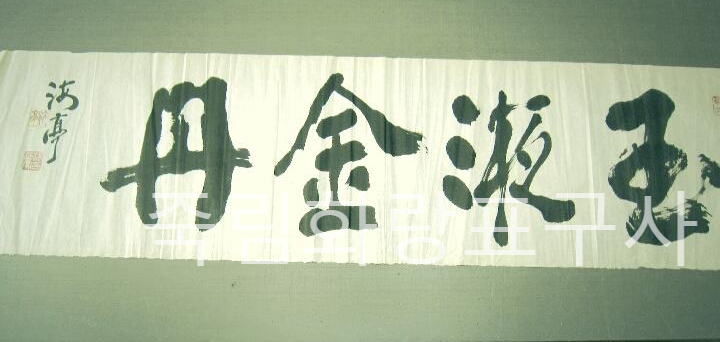 玉液金丹
海亭
죽림화랑표구사